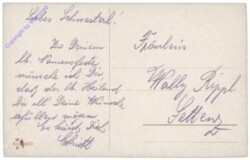 Liebes Schwesterl!
Zu Deinem
lb. Namensfeste
wünsche ich Dir
daß der lb. Heiland
Dir all Deine Wünsche
erfüllen möge
Es grüßt Dich
Fräulein
Wally Rippl